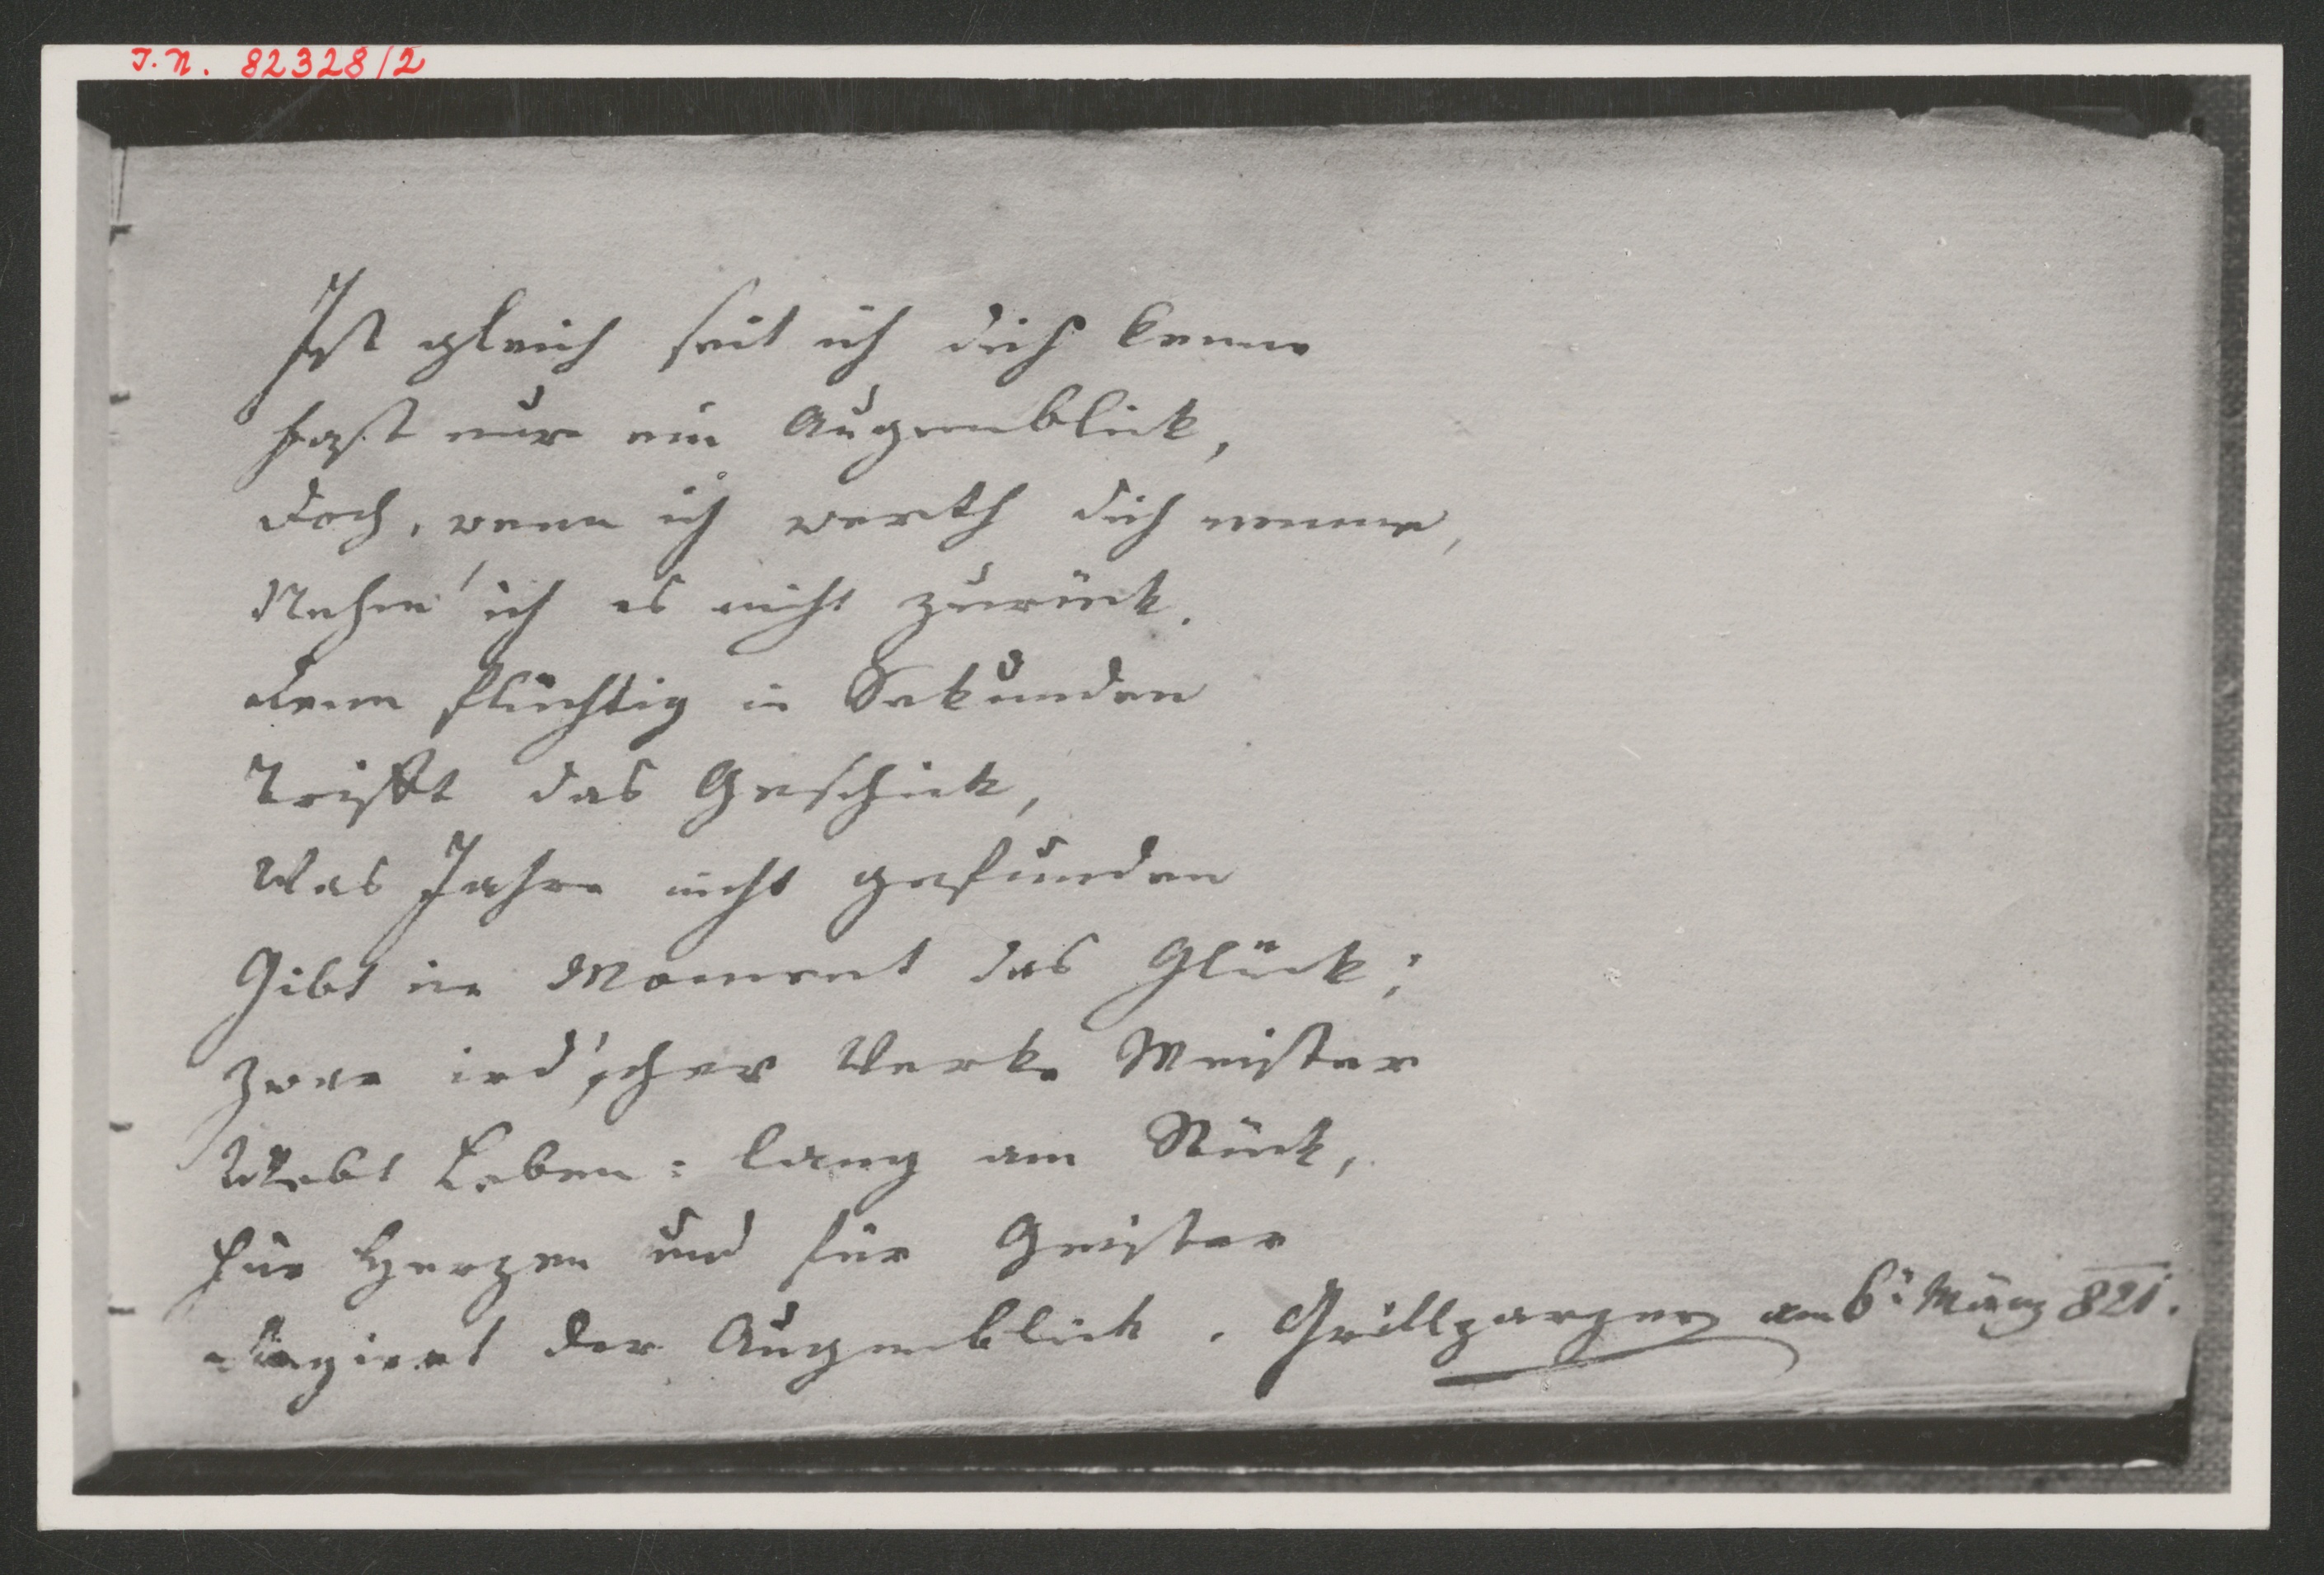 I. N. 82328/2
Ist gleich seit ich dich kenne
Fast nur ein Augenblick,
Doch, wenn ich werth dich nenne,
Nehm' ich es nicht zurück.
Denn flüchtig in Sekunden
Trifft das Geschick,
Was Jahre nicht gefunden
Gibt ein Moment das Glück;
Zwar ird'scher Werke Meister
Webt Leben=lang am Stück,
Für Herzen und für Geister
Regirt der Augenblick. Grillparzer am 6t März 821.